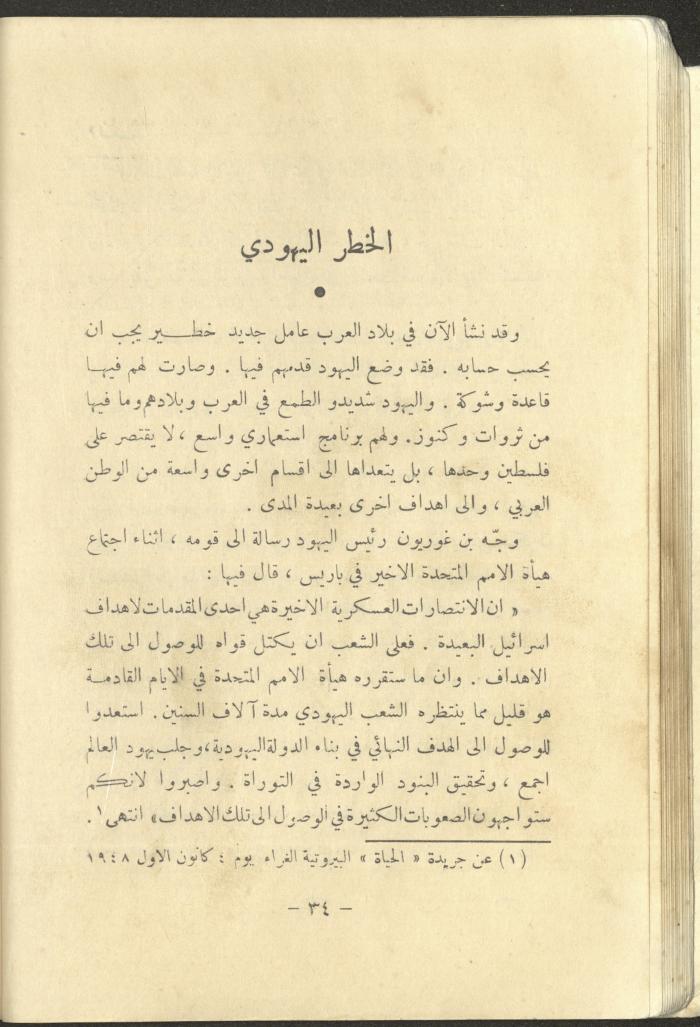 الخطر اليهودي
●
وقد نشأ الآن في بلاد العرب عامل جديد خطير يجب ان
يحسب حسابه . فقد وضع اليهود قدمهم فيها . وصارت لهم فيها
قاعدة وشوكة . واليهود شديدو الطمع في العرب وبلادهم وما فيها
من ثروات وكنوز . ولهم برنامج استعماري واسع ، لا يقتصر على
فلسطين وحدها ، بل يتعداها الى اقسام اخرى واسعة من الوطن
العربي ، والى اهداف اخرى بعيدة المدى .
وجّه بن غوريون رئيس اليهود رسالة الى قومه ، اثناء اجتماع
هيأة الامم المتحدة الاخير في باريس ، قال فيها :
« ان الانتصارات العسكرية الاخيرة هي احدى المقدمات لاهداف
اسرائيل البعيدة . فعلى الشعب ان يكتل قواه للوصول الى تلك
الاهداف . وان ما ستقرره هيأة الامم المتحدة في الايام القادمة
هو قليل مما ينتظره الشعب اليهودي مدة آلاف السنين . استعدوا
للوصول الى الهدف النهائي في بناء الدولة اليهودية، وجلب يهود العالم
اجمع ، وتحقيق البنود الواردة في التوراة . واصبروا لانكم
ستواجهون الصعوبات الكثيرة في الوصول الى تلك الاهداف » انتهى ١ .
(١) عن جريدة « الحياة » البيروتية الغراء يوم ٤ كانون الاول ١٩٤٨
– ٣٤ –